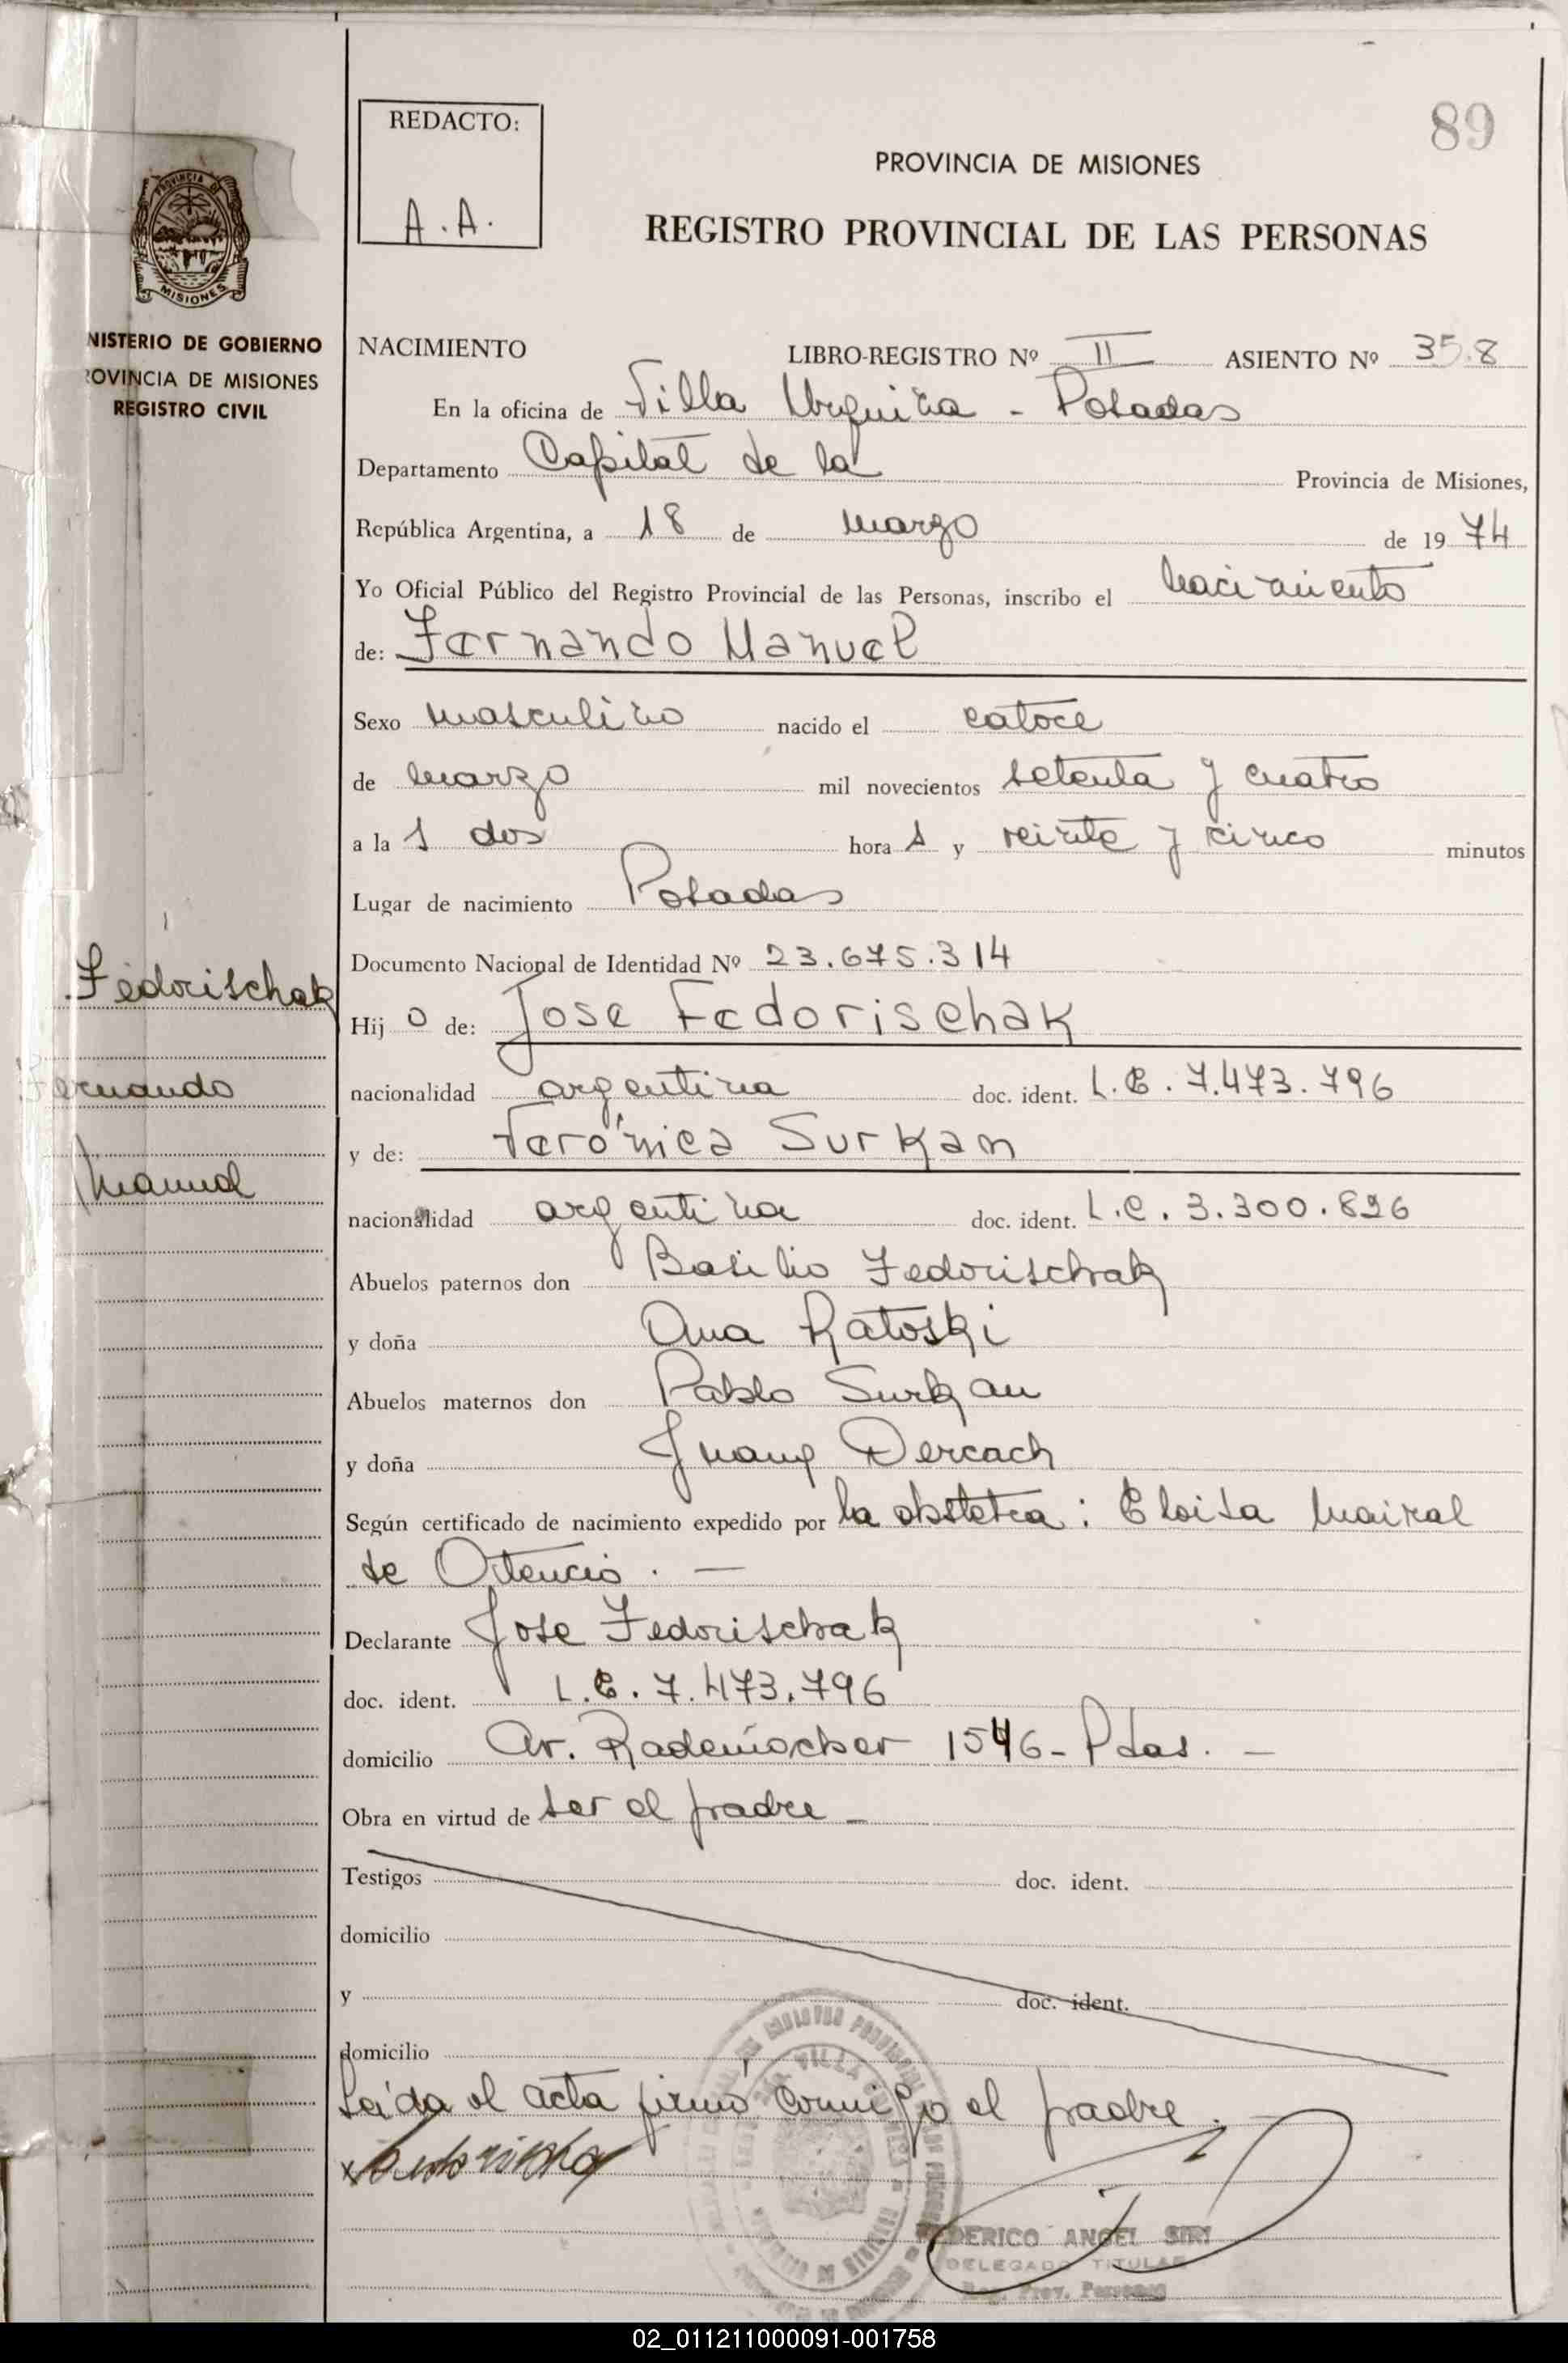 89
REDACTO:
A.A.
PROVINCIA DE MISIONES
REGISTRO PROVINCIAL DE LAS PERSONAS
PROVINCIA DE
MISIONES
NISTERIO DE GOBIERNO
ROVINCIA DE MISIONES
REGISTRO CIVIL
NACIMIENTO LIBRO-REGISTRO Nº II ASIENTO Nº 358
En la oficina de Villa Urquiza - Posadas
Departamento Capital de la Provincia de Misiones,
República Argentina, a 18 de marzo de 1974
Yo Oficial Público del Registro Provincial de las Personas, inscribo el nacimiento
de: Fernando Manuel
Sexo masculino nacido el catoce
de marzo mil novecientos setenta y cuatro
a la s dos hora s y veinte y cinco minutos
Lugar de nacimiento Posadas
Documento Nacional de Identidad Nº 23.675.314
Fedorischak
Hij o de: Jose Fedorischak
Fernando
nacionalidad argentina doc. ident. L.E. 7.473.796
y de: Verónica Surkan
Manuel
nacionalidad argentina doc. ident. L.C. 3.300.826
Abuelos paternos don Basilio Fedorischak
y doña Ana Ratoski
Abuelos maternos don Pablo Surkan
y doña Juana Dercach
Según certificado de nacimiento expedido por la obstetra: Eloisa Mairal
de Ortencio. —
Declarante Jose Fedorischak
doc. ident. L.E. 7.473.796
domicilio Av. Rademacher 1546 - Pdas. —
Obra en virtud de ser el padre —
Testigos doc. ident.
domicilio
y doc. ident.
domicilio
Leída el acta firmó conmigo el padre. —
DERICO ANGEL SIRI
DELEGADO TITULAR
Reg. Prov. Personas
02_011211000091-001758